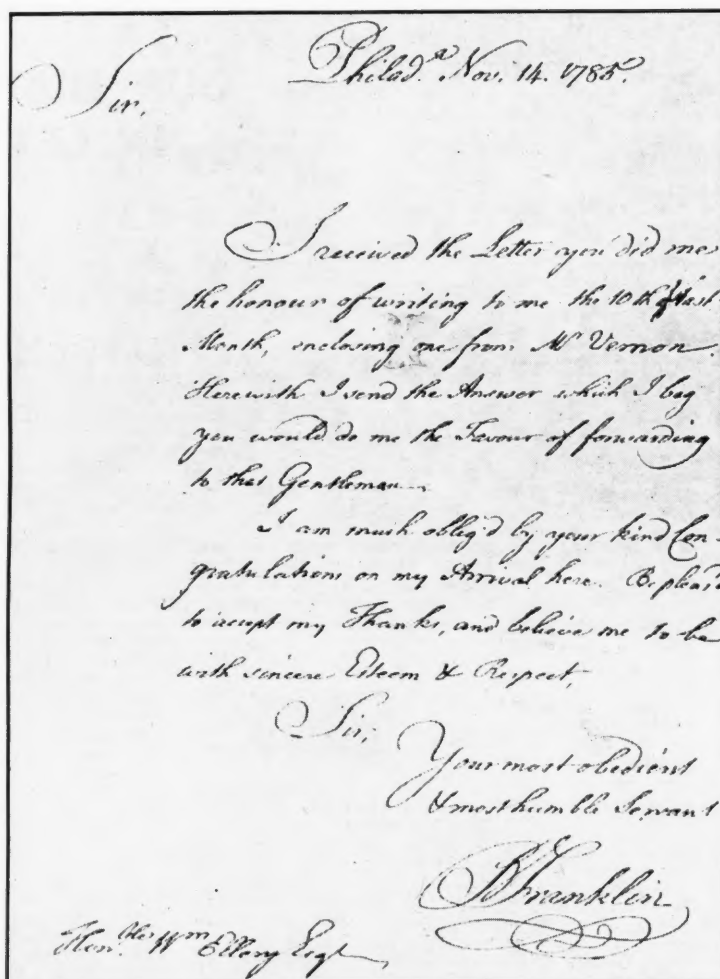 Philad.ᵃ Nov. 14. 1785.
Sir,
I received the Letter you did me
the honour of writing to me the 10th of last
Month, enclosing one from Mʳ Vernon.
Herewith I send the Answer which I beg
you would do me the Favour of forwarding
to that Gentleman.
I am much oblig'd by your kind Con-
gratulations on my Arrival here. Be pleas'd
to accept my Thanks, and believe me to be
with sincere Esteem & Respect,
Sir,
Your most obedient
& most humble Servant
B Franklin
Honᵇˡᵉ Wᵐ Ellery Esqʳ